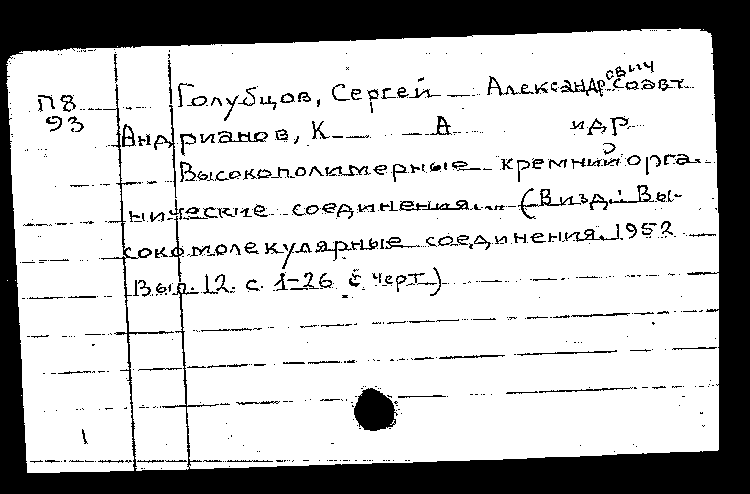 П8 Голубцов, Сергей Александрович соавт
93 Андрианов, К А и др
Высокополимерные кремнийорга-
нические соединения... (В изд.: Вы-
сокомолекулярные соединения. 1952
Вып. 12. с. 1-26 с черт.)
1